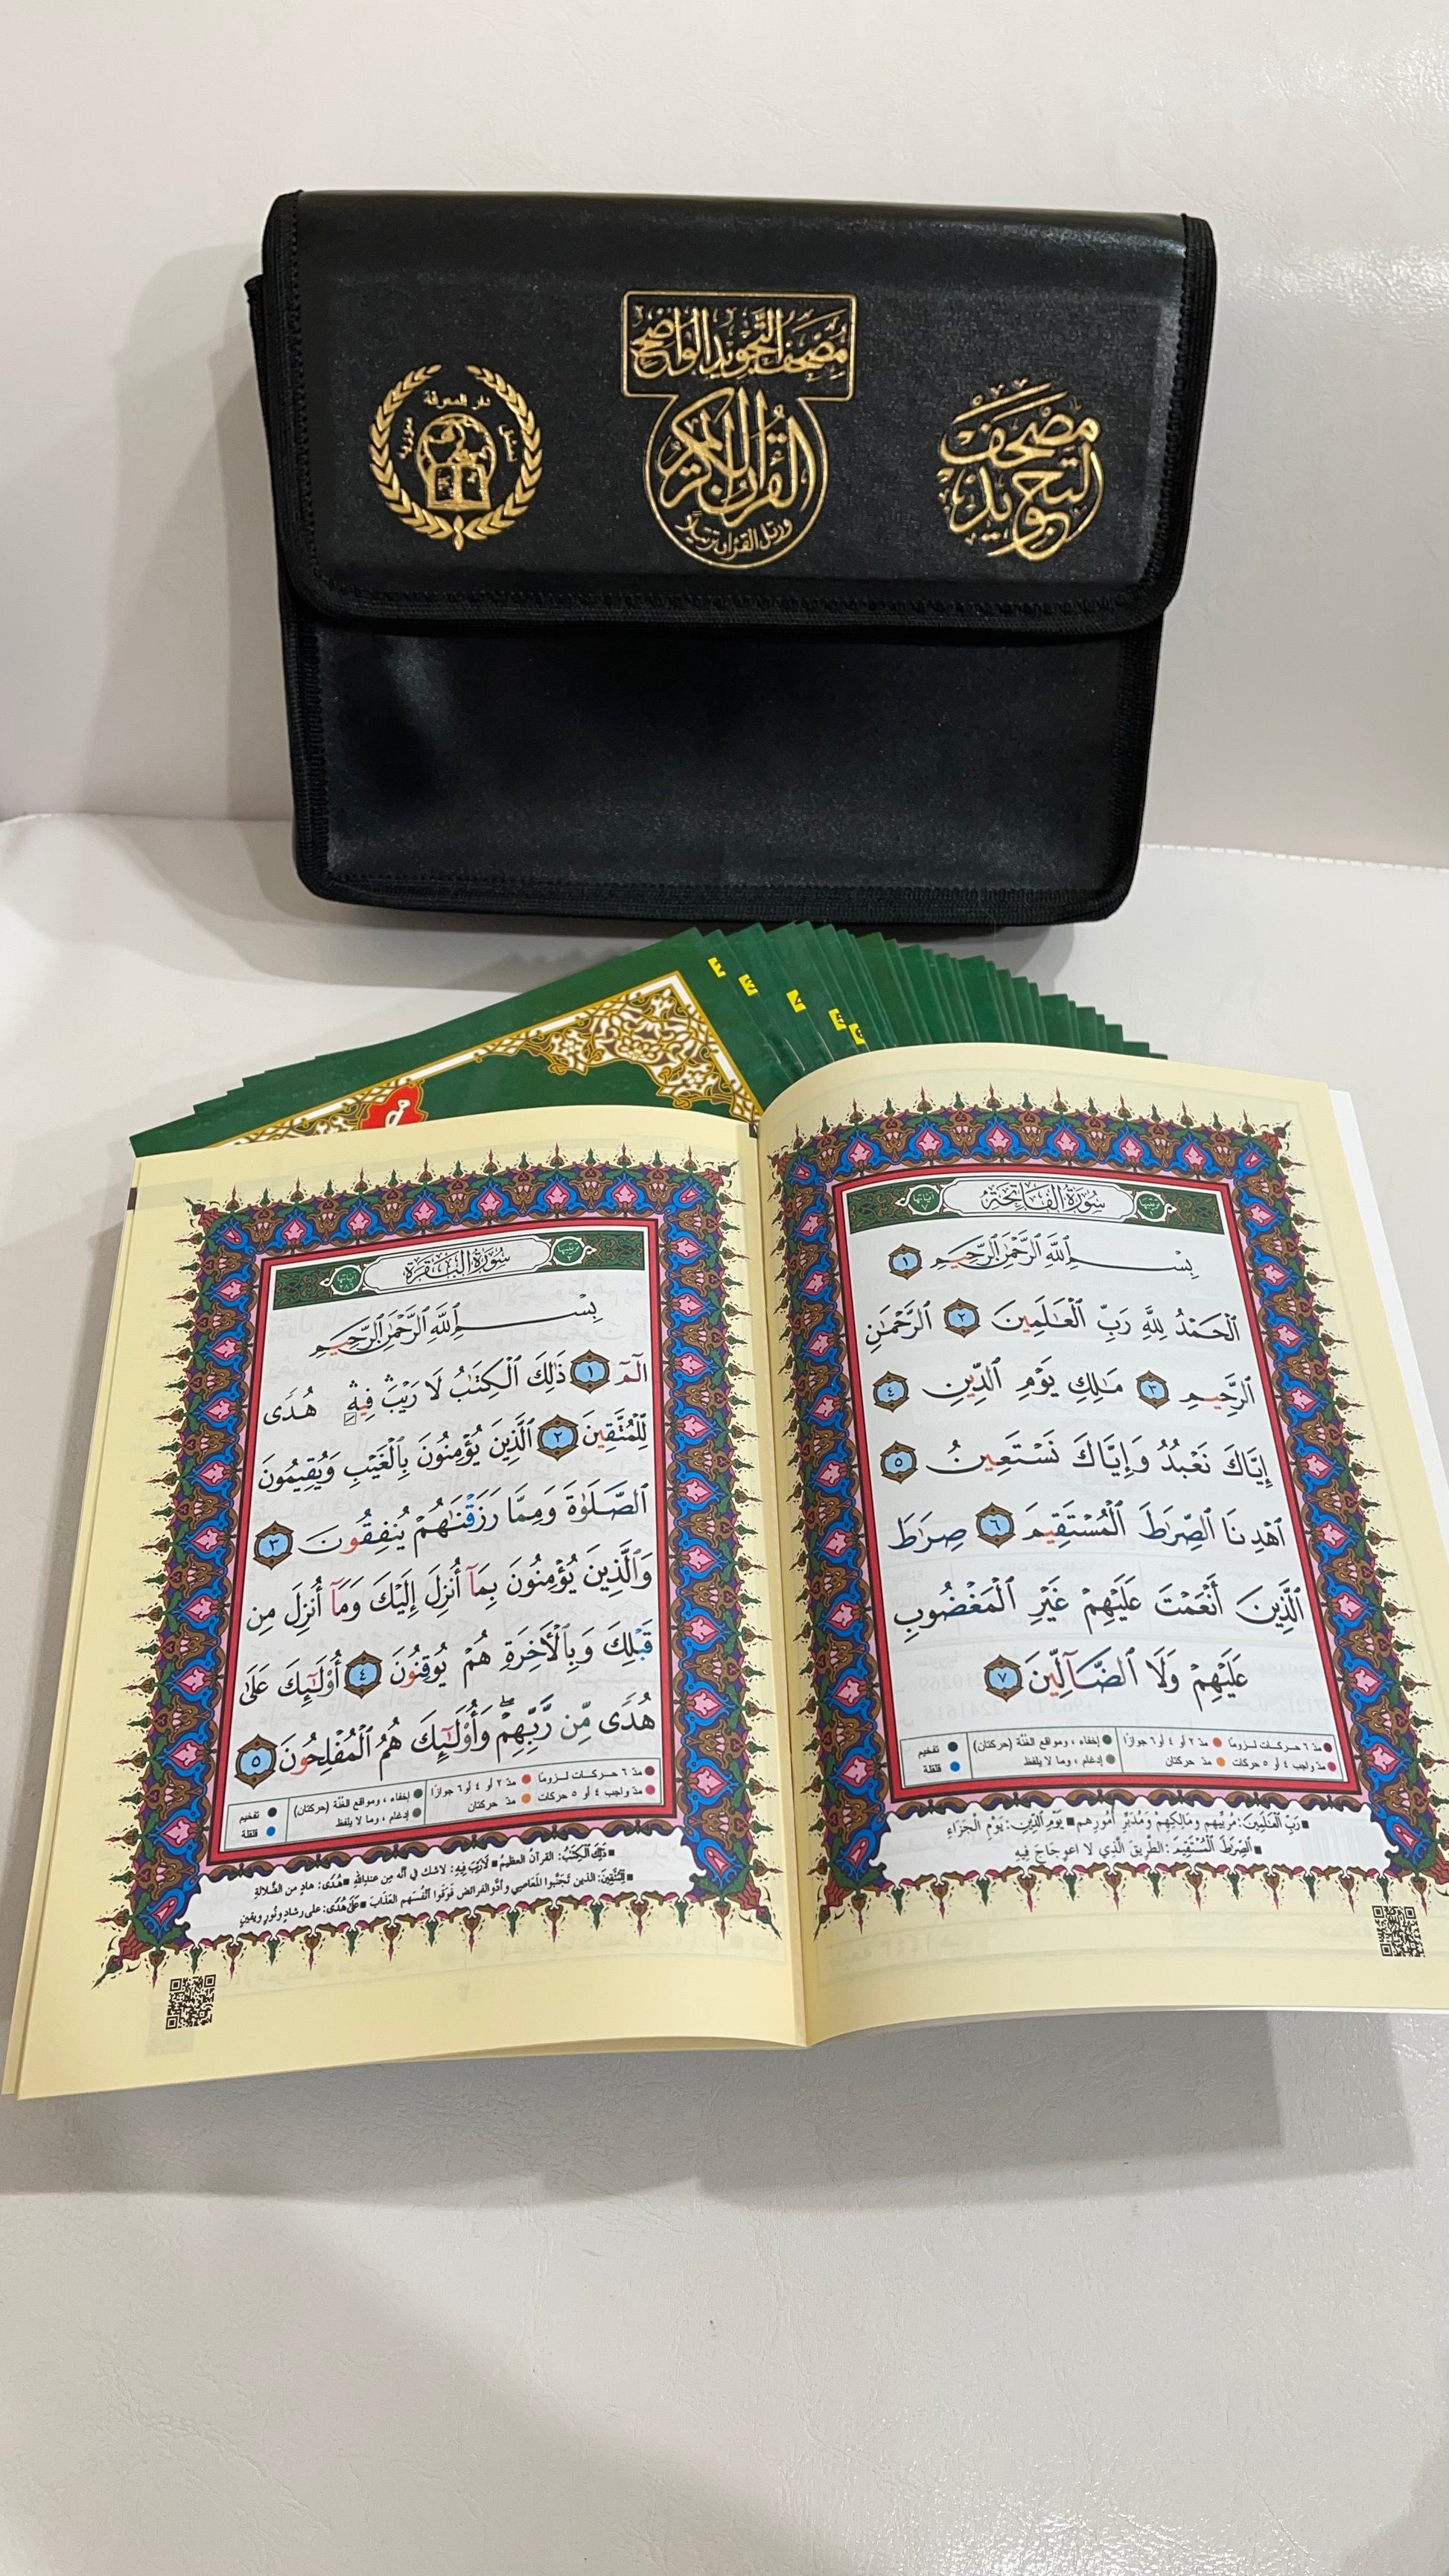 مصحف التجويد الواضح
القرآن الكريم
ورتل القرآن ترتيلا
مصحف
التجويد
دار المعرفة
دمشق
سورية
٣
٧
سُورَةُ الْفَاتِحَةِ
ترتيبها ١
آياتها ٧
بِسْمِ ٱللَّهِ ٱلرَّحْمَٰنِ ٱلرَّحِيمِ ١
ٱلْحَمْدُ لِلَّهِ رَبِّ ٱلْعَٰلَمِينَ ٢ ٱلرَّحْمَٰنِ
ٱلرَّحِيمِ ٣ مَٰلِكِ يَوْمِ ٱلدِّينِ ٤
إِيَّاكَ نَعْبُدُ وَإِيَّاكَ نَسْتَعِينُ ٥
ٱهْدِنَا ٱلصِّرَٰطَ ٱلْمُسْتَقِيمَ ٦ صِرَٰطَ
ٱلَّذِينَ أَنْعَمْتَ عَلَيْهِمْ غَيْرِ ٱلْمَغْضُوبِ
عَلَيْهِمْ وَلَا ٱلضَّآلِّينَ ٧
مدّ ٦ حركات لزومًا مدّ ٢ أو ٤ أو ٦ جوازًا إخفاء ، ومواقع الغُنَّة (حركتان) تفخيم
مدّ واجب ٤ أو ٥ حركات مدّ حركتان إدغام ، وما لا يُلفظ قلقلة
رَبِّ ٱلْعَٰلَمِينَ: مُرَبِّيهِم وَمَالِكِهِمْ وَمُدَبِّرِ أُمُورِهِم يَوْمِ ٱلدِّينِ: يَوْمِ الْجَزَاءِ
ٱلصِّرَٰطَ ٱلْمُسْتَقِيمَ: الطَّرِيقَ الَّذِي لا اعوجَاجَ فِيهِ
سُورَةُ الْبَقَرَةِ
ترتيبها ٢
آياتها ٢٨٦
بِسْمِ ٱللَّهِ ٱلرَّحْمَٰنِ ٱلرَّحِيمِ
الٓمٓ ١ ذَٰلِكَ ٱلْكِتَٰبُ لَا رَيْبَ ۛ فِيهِ ۛ هُدًى
لِّلْمُتَّقِينَ ٢ ٱلَّذِينَ يُؤْمِنُونَ بِٱلْغَيْبِ وَيُقِيمُونَ
ٱلصَّلَوٰةَ وَمِمَّا رَزَقْنَٰهُمْ يُنفِقُونَ ٣
وَٱلَّذِينَ يُؤْمِنُونَ بِمَآ أُنزِلَ إِلَيْكَ وَمَآ أُنزِلَ مِن
قَبْلِكَ وَبِٱلْأَخِرَةِ هُمْ يُوقِنُونَ ٤ أُوْلَٰٓئِكَ عَلَىٰ
هُدًى مِّن رَّبِّهِمْ ۖ وَأُوْلَٰٓئِكَ هُمُ ٱلْمُفْلِحُونَ ٥
مدّ ٦ حركات لزومًا مدّ ٢ أو ٤ أو ٦ جوازًا إخفاء ، ومواقع الغُنَّة (حركتان) تفخيم
مدّ واجب ٤ أو ٥ حركات مدّ حركتان إدغام ، وما لا يُلفظ قلقلة
ذَٰلِكَ ٱلْكِتَٰبُ: القرآن العظيمُ لَا رَيْبَ فِيهِ: لا شك في أنّه مِن عندِ اللهِ هُدًى: هادٍ من الضّلالةِ
لِّلْمُتَّقِينَ: الذين تَجَنَّبوا المَعَاصِي وأدَّوا الفَرائض فَوَقَوا أنْفُسَهم العَذَابَ عَلَىٰ هُدًى: على رشادٍ ونُورٍ ويقينٍ